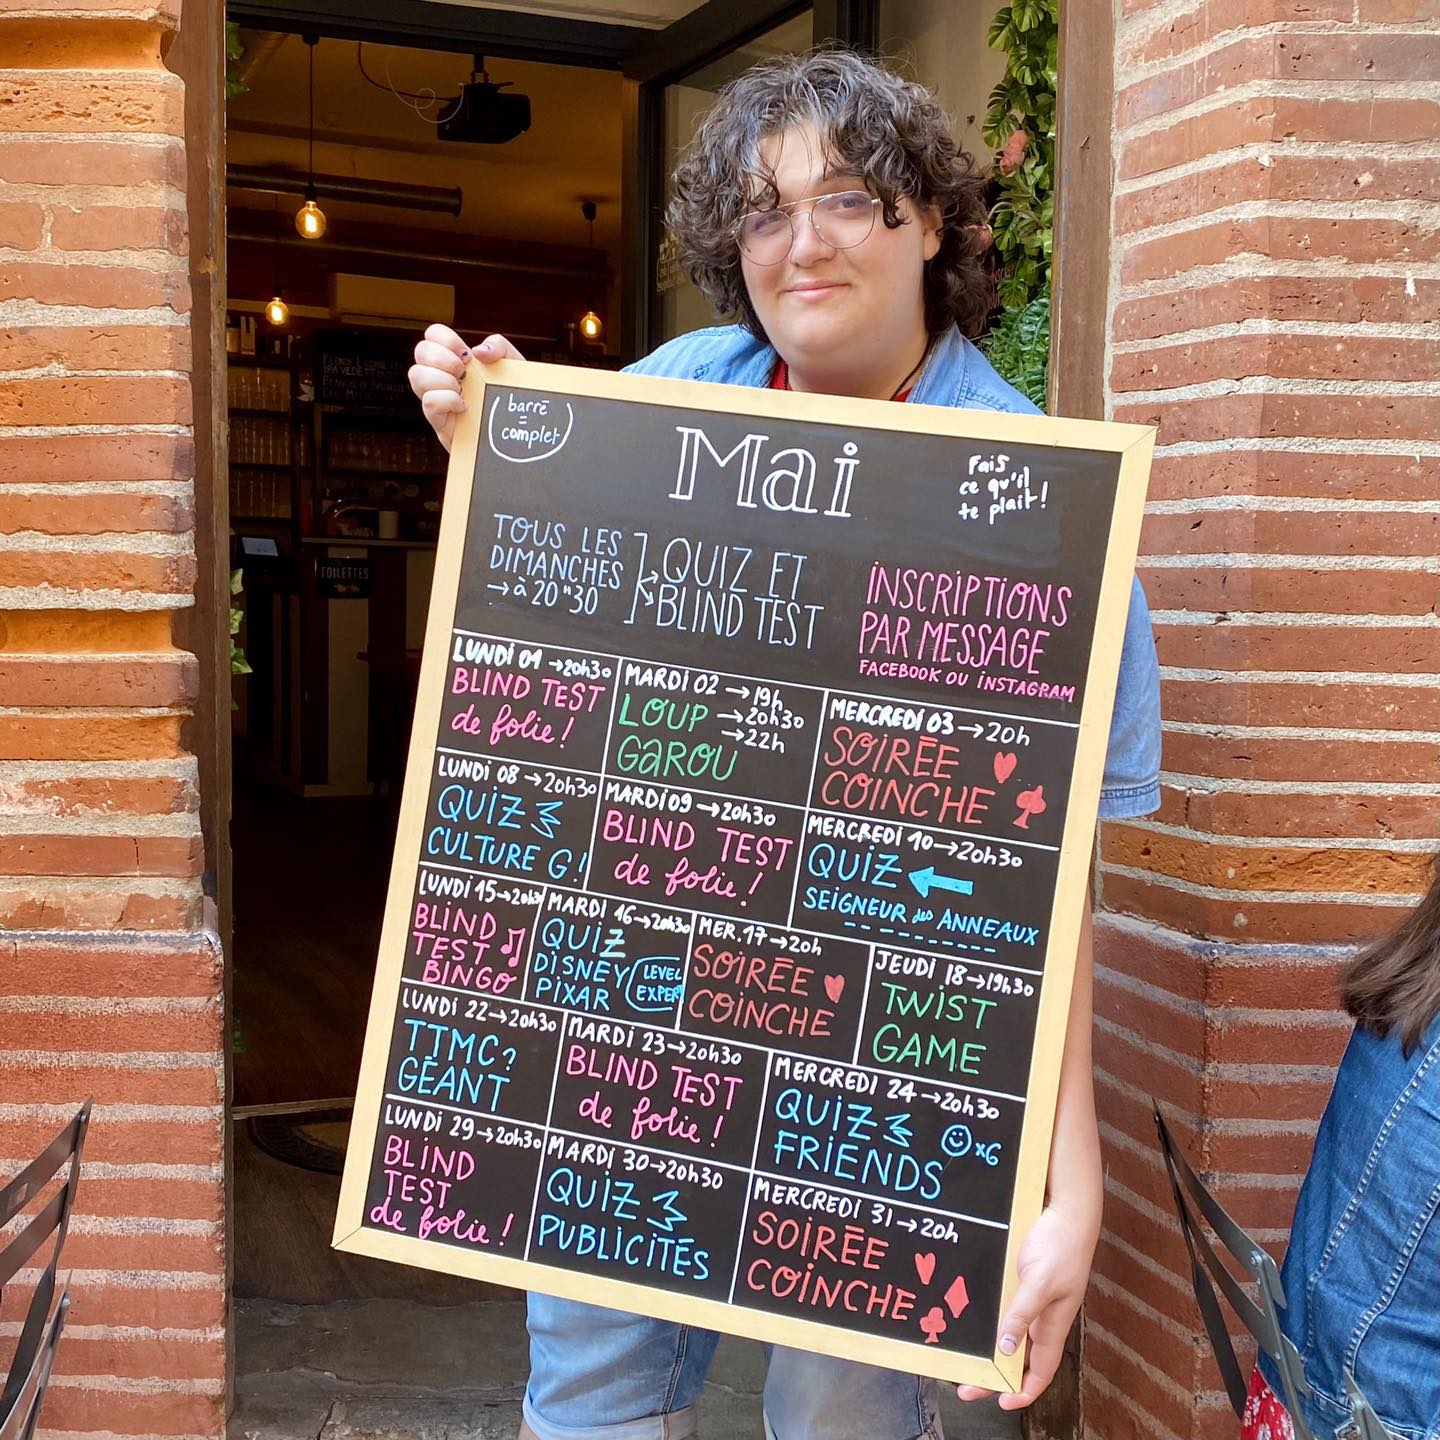 barré
=
complet
Mai
Fais
ce qu'il
te plait!
TOUS LES
DIMANCHES
→ à 20"30
QUIZ ET
BLIND TEST
INSCRIPTIONS
PAR MESSAGE
FACEBOOK OU INSTAGRAM
LUNDI 01 → 20h30
BLIND TEST
de folie!
MARDI 02 → 19h
→ 20h30
→ 22h
LOUP
GAROU
MERCREDI 03 → 20h
SOIRÉE
COINCHE
LUNDI 08 → 20h30
QUIZ
CULTURE G!
MARDI 09 → 20h30
BLIND TEST
de folie!
MERCREDI 10 → 20h30
QUIZ
SEIGNEUR des ANNEAUX
LUNDI 15 → 20h30
BLIND
TEST
BINGO
MARDI 16 → 20h30
QUIZ
DISNEY
PIXAR
LEVEL
EXPERT
MER. 17 → 20h
SOIRÉE
COINCHE
JEUDI 18 → 19h30
TWIST
GAME
LUNDI 22 → 20h30
TTMC?
GÉANT
MARDI 23 → 20h30
BLIND TEST
de folie!
MERCREDI 24 → 20h30
QUIZ
FRIENDS
x6
LUNDI 29 → 20h30
BLIND
TEST
de folie!
MARDI 30 → 20h30
QUIZ
PUBLICITÉS
MERCREDI 31 → 20h
SOIRÉE
COINCHE
TOILETTES